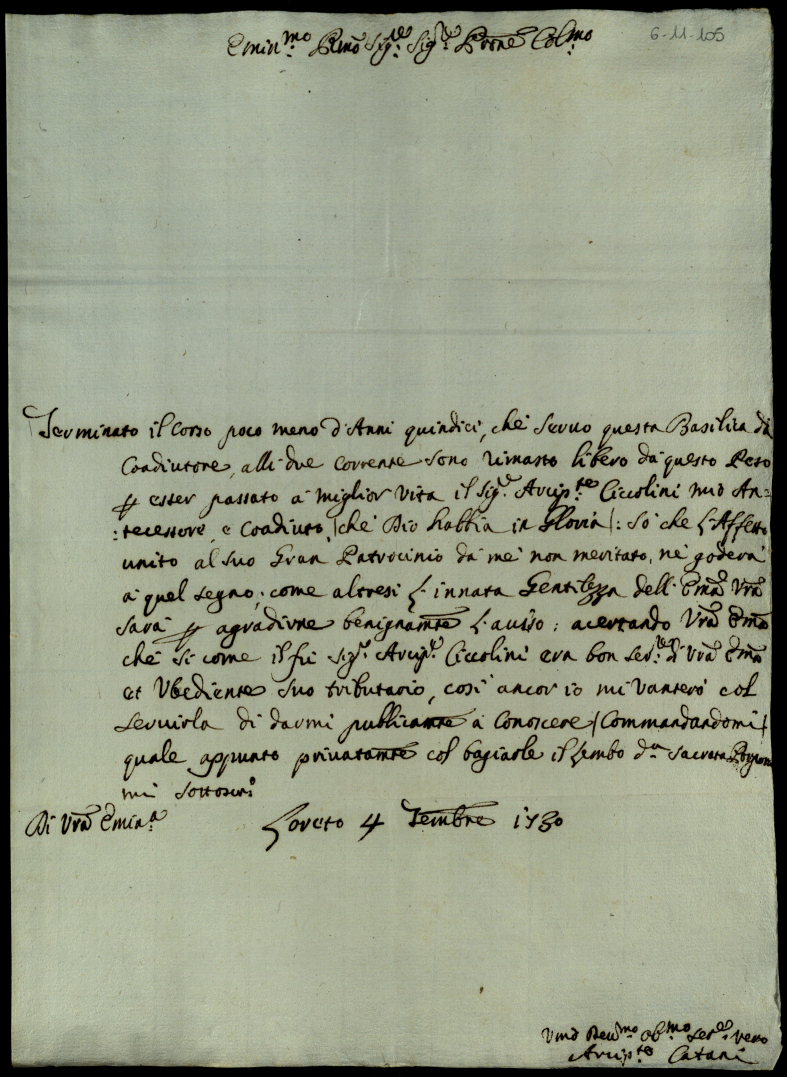 Emin.mo Rmo Sig.re Sig.re Prone Colmo
6-11-105
Terminato il Corso poco meno d'Anni quindici, che servo questa Basilica da
Coadiutore, alli due corrente sono rimasto libero da questo Peso
p esser passato à miglior vita il Sig.r Arcip.te Ciccolini mio An=
:tecessore, e Coadiuto, (che Dio habbia in Gloria): So che l'Affetto
unito al suo Gran Patrocinio da me non meritato, ne goderà
à quel segno; come altresi l'innata Gentilezza dell'Ema Vra
sarà p agradirne benignamte l'auiso; acertando Vra Ema
che si come il fù Sig.r Arcip.e Ciccolini era bon ser.re di Vra Ema
et Vbediente suo tributario, così ancor io mi vanterò col
seruirla di darmi publicamte à Conoscere (Commandandomi)
quale appunto priuatamte col bagiarle il Lembo d.a Sacrata Porpora
mi sottoscri.o
Di Vra Emin.a
Loreto 4 Tembre 1730
Vmo Deu.mo ob.mo ser.re vero
Arcip.te Catani